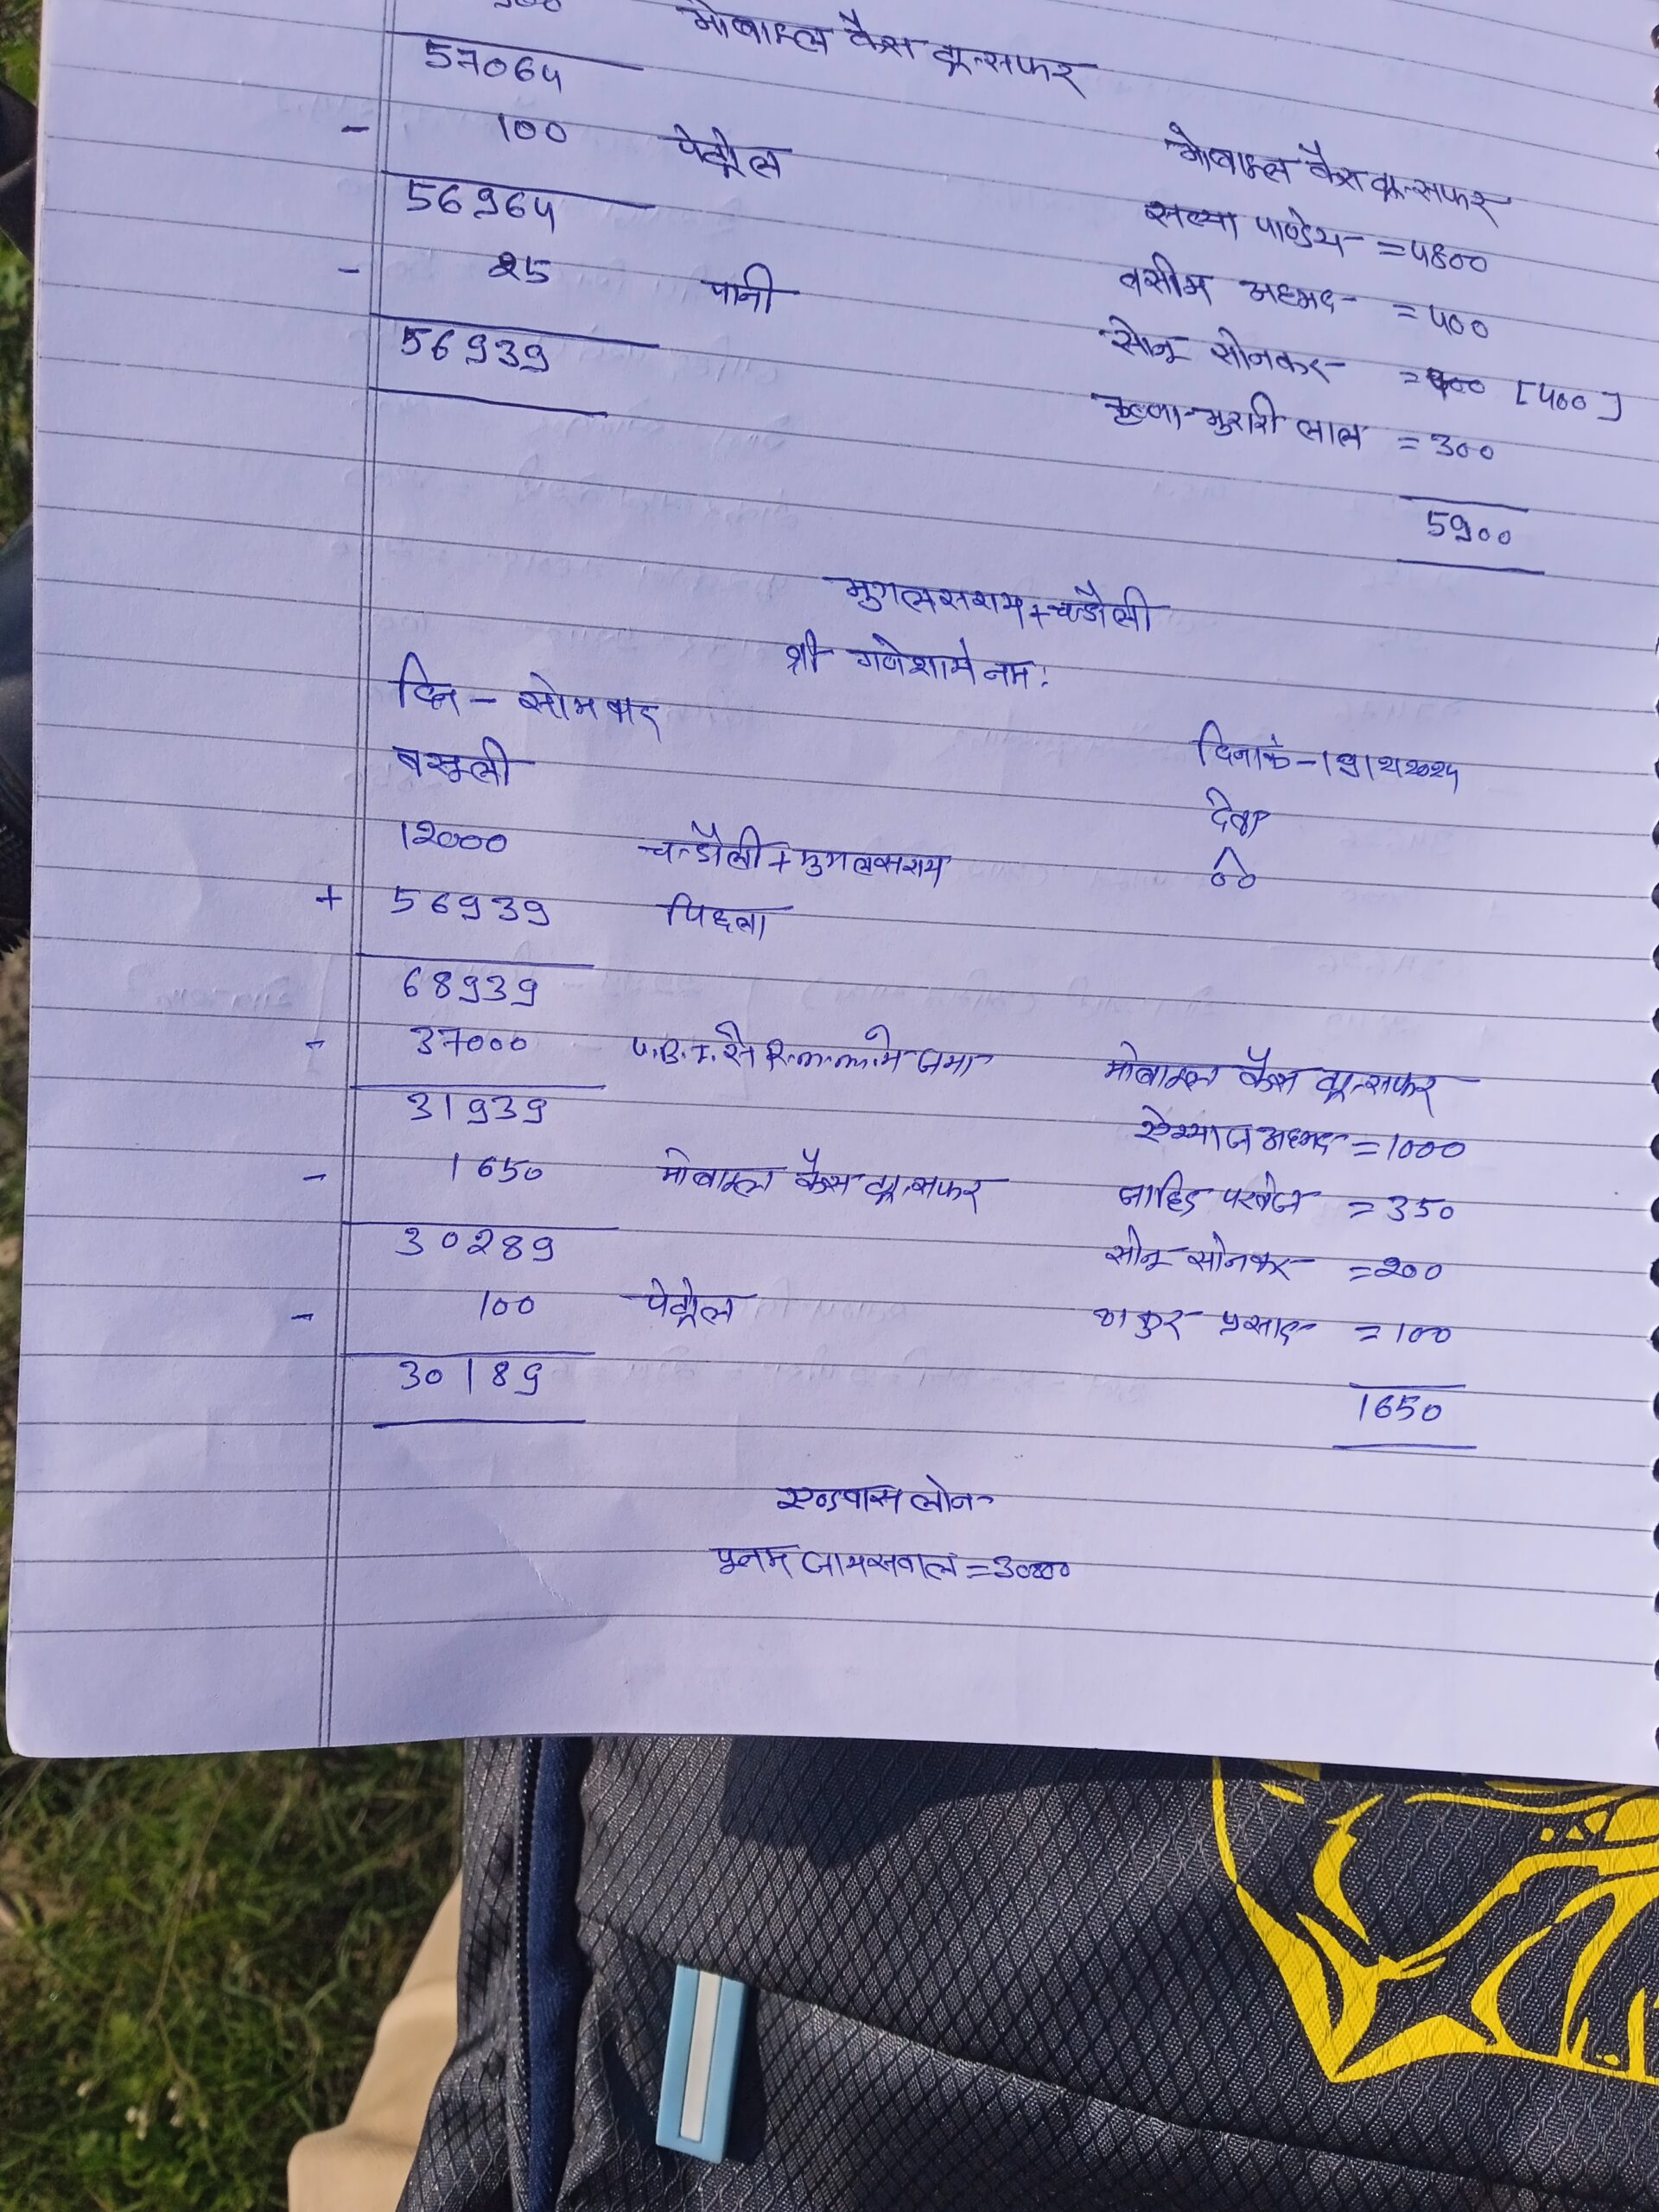 मोबाइल कैस ट्रान्सफर
57064
- 100 पेट्रोल
56964
- 25 पानी
56939
मोबाइल कैस ट्रान्सफर
सत्या पाण्डेय = 4800
वसीम अहमद = 400
सोनू सोनकर = 400 [400]
कृष्णा मुरारी लाल = 300
5900
मुगलसराय + चन्डौली
श्री गणेशाये नम:
दिन - सोमवार
दिनांक - 19/2/2024
वसूली
देवा
00
12000 चन्डौली + मुगलसराय
+ 56939 पिछला
68939
- 37000 जमा
31939
- 1650 मोबाइल कैस ट्रान्सफर
30289
- 100 पेट्रोल
30189
मोबाइल कैस ट्रान्सफर
अहमद = 1000
जाहिड परवेज = 350
सोनू सोनकर = 200
ठाकुर प्रसाद = 100
1650
एडवांस लोन
पूनम जायसवाल = 30000